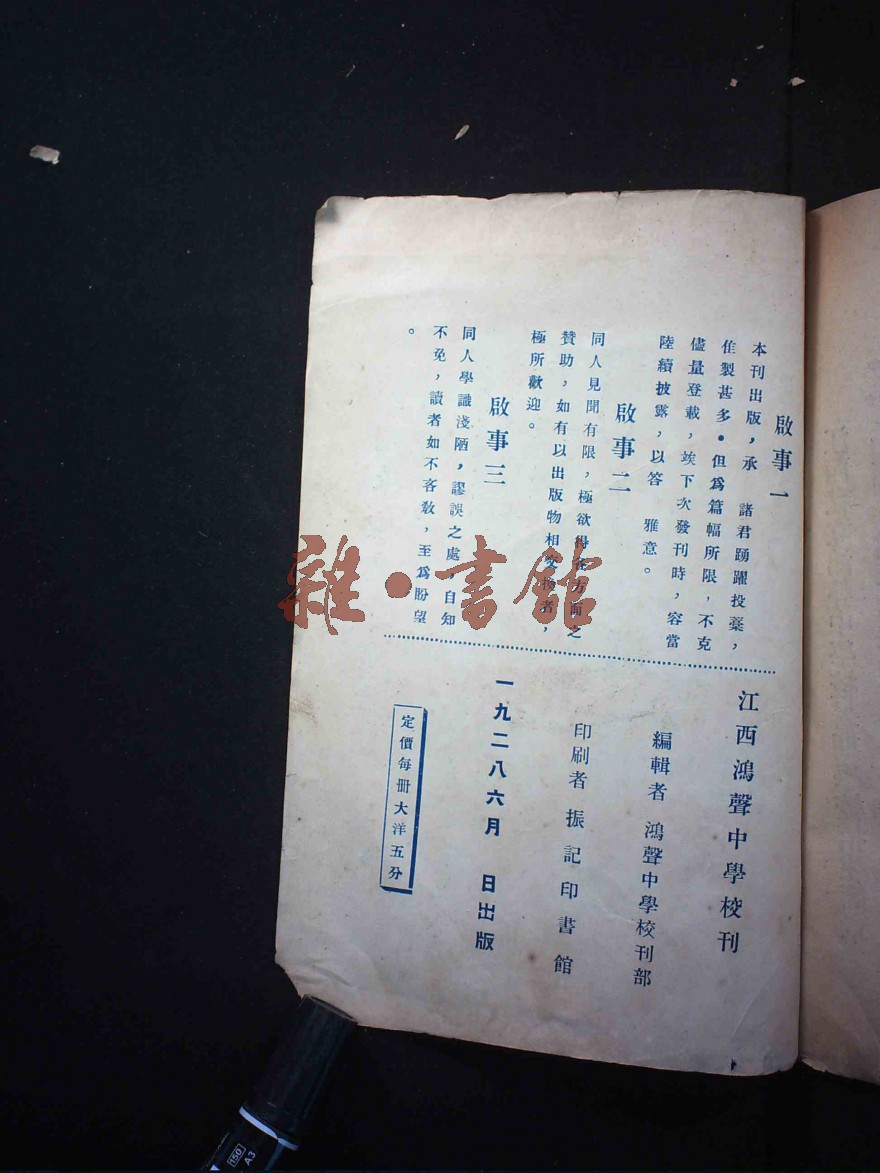 啟事一
本刊出版，承　諸君踴躍投藁，
隹製甚多。但爲篇幅所限，不克
儘量登載，竢下次發刊時，容當
陸續披露，以答　雅意。
啟事二
同人見聞有限，極欲得各方面之
贊助，如有以出版物相交換者，
極所歡迎。
啟事三
同人學識淺陋，謬誤之處，自知
不免，讀者如不吝敎，至爲盼望
。
江西鴻聲中學校刊
編輯者　鴻聲中學校刊部
印刷者　振記印書館
一九二八六月　日出版
定價每册大洋五分
雜·書館
150
A3